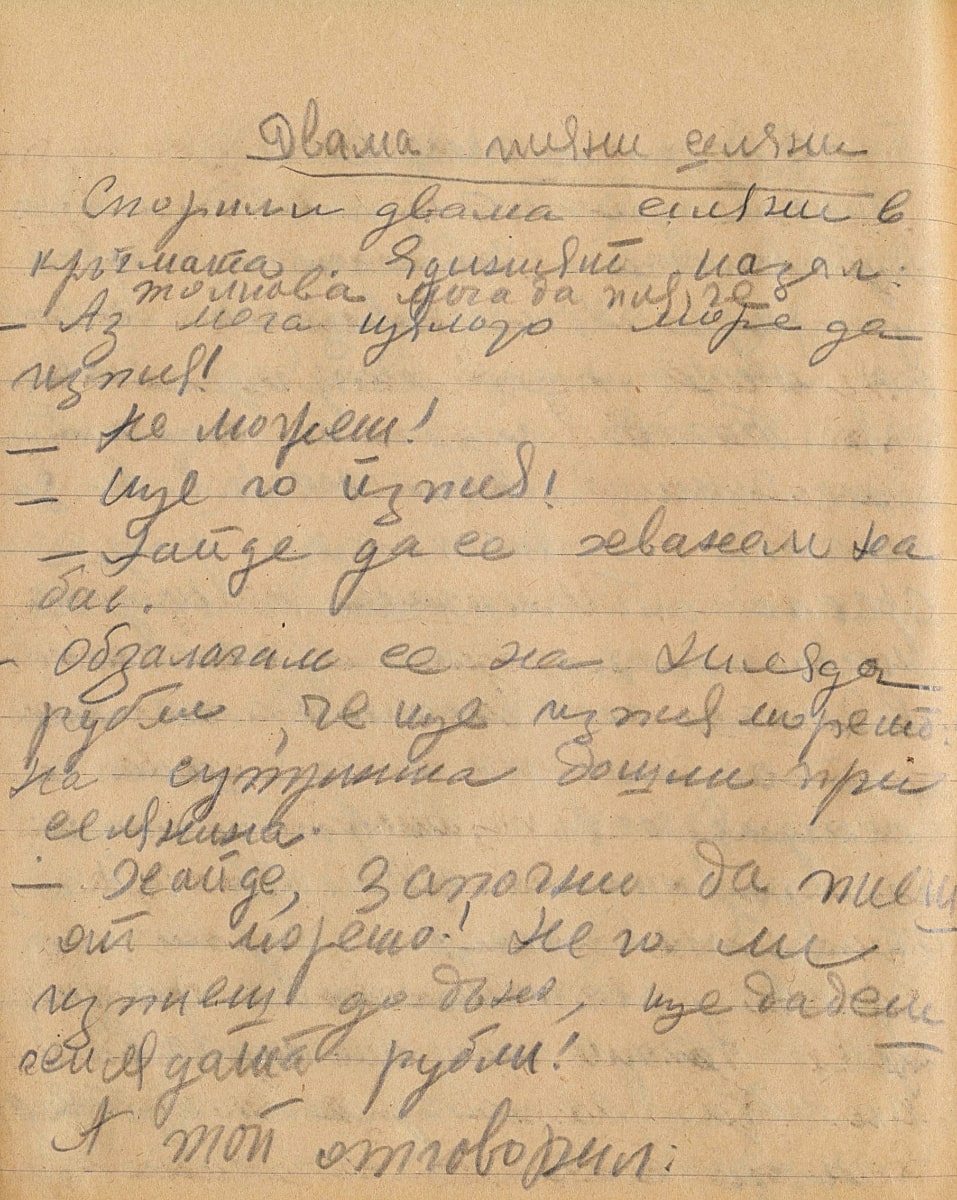 Двама пияни селяни
Спорили двама селяни в
кръчмата. Единият казал:
толкова мога да пия, че
– Аз мога цялото море да
изпия!
– Не можеш!
– Ще го изпия!
– Хайде да се хванем на
бас.
– Обзалагам се на хиляда
рубли, че ще изпия морето.
На сутринта дошли при
селянина.
– Хайде, започни да пиеш
от морето! Не го ли
изпиеш до дъно, ще дадеш
хилядата рубли!
А той отговорил: